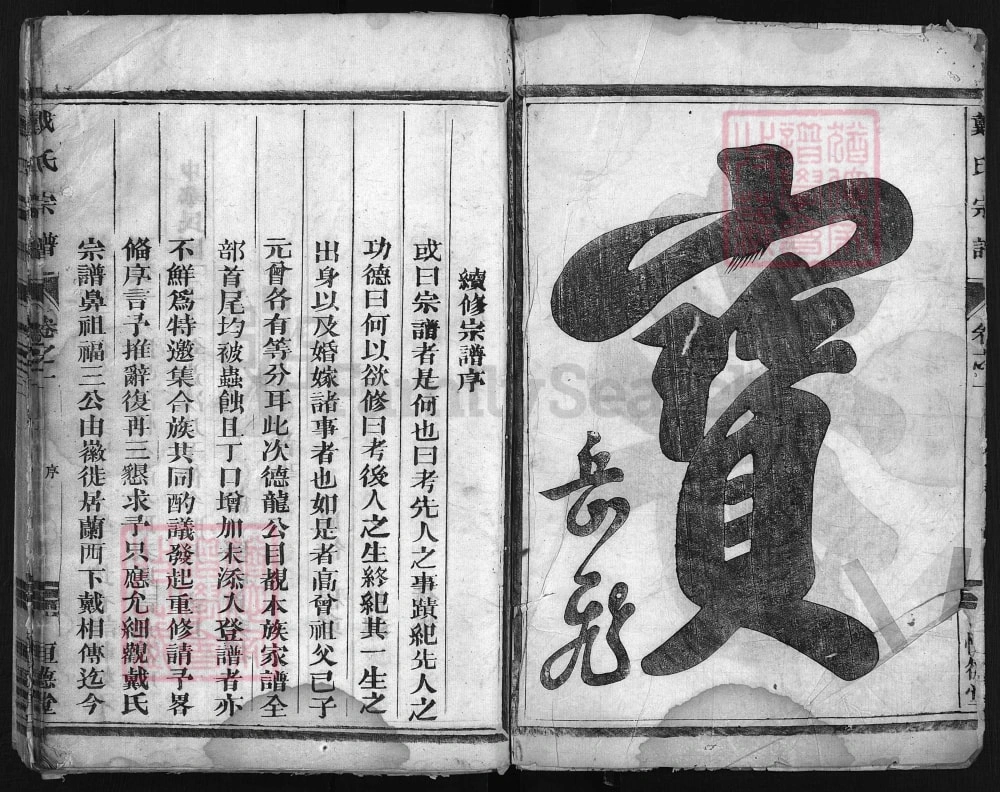 寶
岳飛
戴氏宗譜
續修宗譜序
或曰宗譜者是何也曰考先人之事蹟紀先人之
功德曰何以欲修曰考後人之生終紀其一生之
出身以及婚嫁諸事者也如是者高曾祖父已子
元曾各有等分耳此次德龍公目覩本族家譜全
部首尾均被蟲蝕且丁口增加未添入登譜者亦
不鮮為特邀集合族共同酌議發起重修請予畧
脩序言予推辭復再三懇求予只應允細觀戴氏
宗譜鼻祖福三公由徽徙居蘭西下戴相傳迄今
戴氏宗譜
卷之一
序